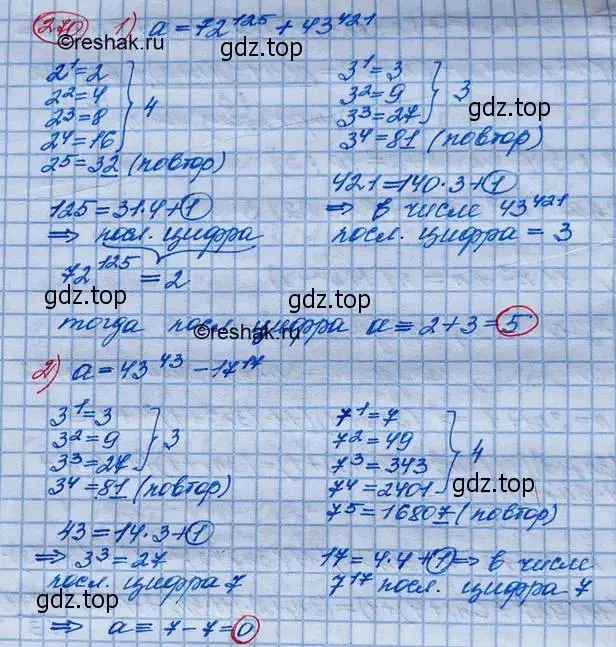 270 1) a = 72^125 + 43^421
©reshak.ru
gdz.top
2^1 = 2
2^2 = 4
2^3 = 8
2^4 = 16
} 4
2^5 = 32 (повтор)
125 = 31·4 + 1
⇒ посл. цифра
72^125 = 2
gdz.top
3^1 = 3
3^2 = 9
3^3 = 27
} 3
gdz.top
3^4 = 81 (повтор)
421 = 140·3 + 1
⇒ в числе 43^421
посл. цифра = 3
gdz.top
тогда посл. цифра a = 2 + 3 = 5
©reshak.ru
2) a = 43^43 - 17^17
3^1 = 3
3^2 = 9
3^3 = 27
} 3
3^4 = 81 (повтор)
43 = 14·3 + 1
⇒ 3^3 = 27
посл. цифра 7
gdz.top
7^1 = 7
7^2 = 49
7^3 = 343
7^4 = 2401
} 4
gdz.top
7^5 = 16807 (повтор)
17 = 4·4 + 1 ⇒ в числе
7^17 посл. цифра 7
gdz.top
⇒ a = 7 - 7 = 0